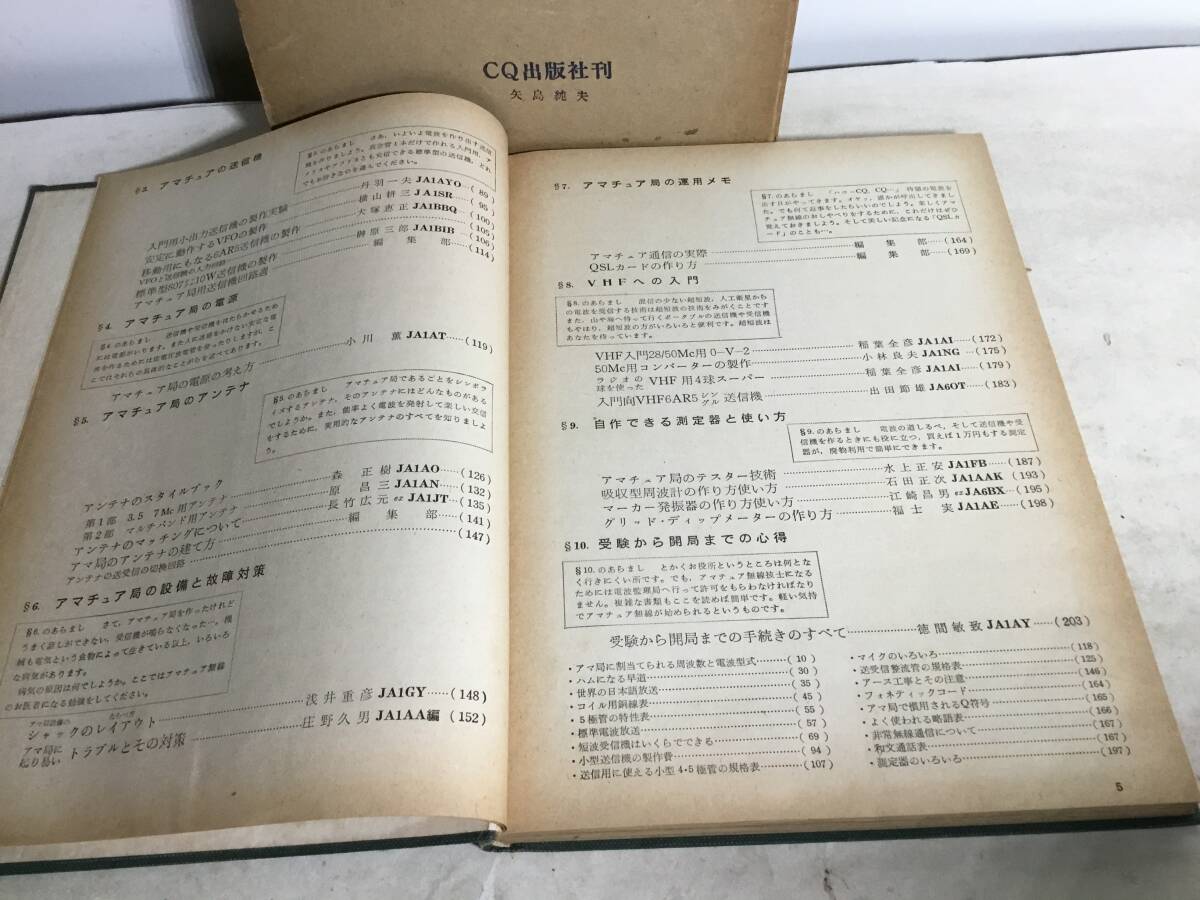 CQ出版社刊
矢島純夫
§3. アマチュアの送信機
§3.のあらまし さあ、いよいよ電波を作り出す送信
機を作りましょう。真空管1本だけで作れる入門用、ア
メリカやアフリカとも交信できる標準型の送信機、どれ
でもお好きなのを選んでください。
入門用小出力送信機の製作実験 丹羽一夫 JA1AYO……(89)
安定に動作するVFOの製作 横山耕三 JA1SR……(95)
移動用にもなる6AR5送信機の製作 大塚恵正 JA1BBQ……(100)
VFOと送信機の入力回路……(105)
標準型807に10W送信機の製作 榊原三郎 JA1BIB……(106)
アマチュア局用送信機回路選 編集部……(114)
§4. アマチュア局の電源
§4.のあらまし 送信機や受信機をはたらかせるため
には電源がいります。また人に迷惑をかけない安定な電
アマチュア局の電源の考え方 小川薫 JA1AT……(119)
§5. アマチュア局のアンテナ
§5.のあらまし アマチュア局であることをシンボラ
イズするアンテナ、そのアンテナにはどんなものがある
でしょうか。また、能率よく電波を発射して楽しい交信
をするために、実用的なアンテナのすべてを知りましょ
う。
アンテナのスタイルブック 森正樹 JA1AO……(126)
第1部 3.5 7Mc用アンテナ 原昌三 JA1AN……(132)
第2部 マルチバンド用アンテナ 長竹広元 ex JA1JT……(135)
アンテナのマッチングについて 編集部……(141)
アマ局のアンテナの建て方……(147)
アンテナの送受信の切換回路
§6. アマチュア局の設備と故障対策
§6.のあらまし さて、アマチュア局を作ったけれど
うまく話しができない、受信機が鳴らなくなった…。機
械も電気という食物によって生きている以上、いろいろ
な病気があります。
病気の原因は何でしょうか。ここではアマチュア無線
のお医者になる勉強をしてください。
アマ局設備の
シャックのレイアウト 浅井重彦 JA1GY……(148)
アマ局に
起り易い トラブルとその対策 庄野久男 JA1AA編 (152)
§7. アマチュア局の運用メモ
§7.のあらまし 「ハローCQ、CQ…」 待望の電波を
出す日がやってきます。オヤッ、誰かが呼出してきまし
た。でも何て返事をしたらいいのでしょう。楽しくアマ
チュア無線のおしゃべりをするために、これだけはぜひ
覚えておきましょう。そして美しい記念になる「QSLカ
ード」のことも…。
アマチュア通信の実際 編集部……(164)
QSLカードの作り方 編集部……(169)
§8. VHFへの入門
§8.のあらまし 混信の少ない超短波、人工衛星から
の電波を受信する技術は超短波の技術をみがくことです
また、山や海へ持って行くポータブルの送信機や受信機
もやはり、超短波の方がいろいろと便利です。超短波は
あなたを待っています。
VHF入門28/50Mc用0-V-2 稲葉全彦 JA1AI……(172)
50Mc用コンバーターの製作 小林良夫 JA1NG……(175)
ラジオの
球を使った VHF用4球スーパー 稲葉全彦 JA1AI……(179)
入門向VHF6AR5シングル送信機 出田節雄 JA6OT……(183)
§9. 自作できる測定器と使い方
§9.のあらまし 電波の道しるべ、そして送信機や受
信機を作るときにも役に立つ、買えば1万円もする測定
器が、廃物利用で簡単にできます。
アマチュア局のテスター技術 水上正安 JA1FB……(187)
吸収型周波計の作り方使い方 石田正次 JA1AAK (193)
マーカー発振器の作り方使い方 江崎昌男 ex JA6BX……(195)
グリッド・ディップメーターの作り方 福士実 JA1AE……(198)
§10. 受験から開局までの心得
§10.のあらまし とかくお役所というところは何とな
く行きにくい所です。でも、アマチュア無線技士になる
ためには電波監理局へ行って許可をもらわなければなり
ません。複雑な書類もここを読めば簡単です。軽い気持
でアマチュア無線が始められるというものです。
受験から開局までの手続きのすべて 徳間敏致 JA1AY……(203)
・アマ局に割当てられる周波数と電波型式………(10)
・ハムになる早道………(30)
・世界の日本語放送………(35)
・コイル用銅線表………(45)
・5極管の特性表………(55)
・標準電波放送………(57)
・短波受信機はいくらでできる………(69)
・小型送信機の製作費………(94)
・送信用に使える小型4・5極管の規格表………(107)
・マイクのいろいろ………(118)
・送受信整流管の規格表………(125)
・アース工事とその注意………(146)
・フォネティックコード………(164)
・アマ局で慣用されるQ符号………(165)
・よく使われる略語表………(166)
・非常無線通信について………(167)
・和文通話表………(167)
・測定器のいろいろ………(197)
5